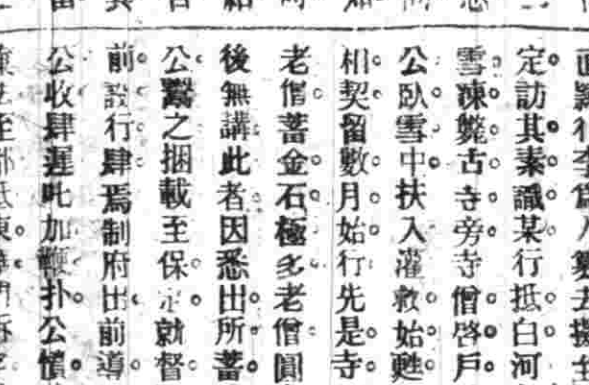 定訪其素識某行抵白河
雪凍斃古寺旁寺僧啓戶
公臥雪中扶入灌救始甦
相契留數月始行先是寺
老僧蓄金石極多老僧圓
後無講此者因悉出所蓄
公鬻之捆載至保定就督
前設行肆焉制府出前導
公收肆遲叱加鞭扑公憤